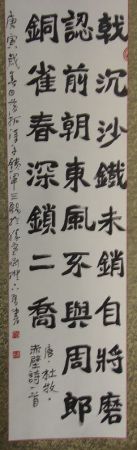 戟沉沙鐵未銷自將磨
認前朝東風不與周郎
銅雀春深鎖二喬
唐·杜牧·
赤壁詩一首
庚寅歲春日
書